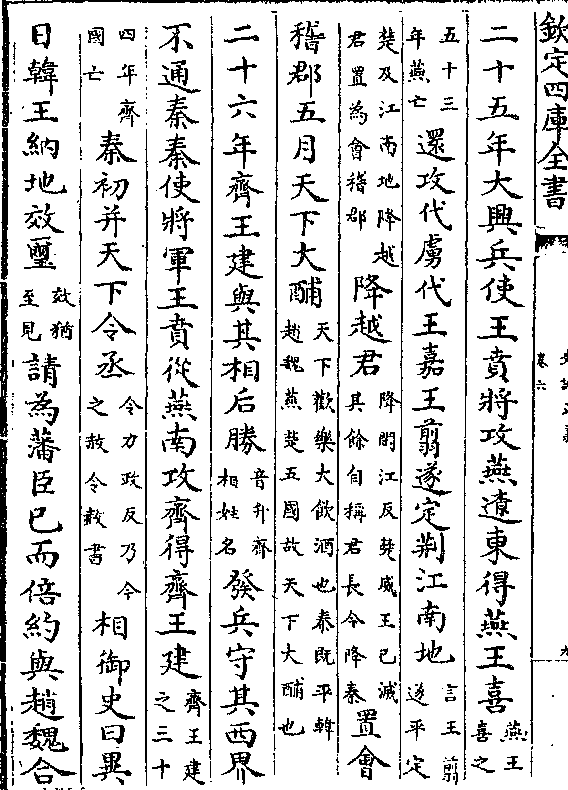 欽定四庫全書
卷六
二十五年大興兵使王賁將攻燕遼東得燕王喜燕王喜之
五十三年燕亡還攻代虜代王嘉王翦遂定荆江南地言王翦遂平定
楚及江南地降越君置為會稽郡降越君降閉江反楚威王已滅其餘自稱君長今降秦置會
稽郡五月天下大酺天下歡樂大飲酒也秦既平韓趙魏燕楚五國故天下大酺也
二十六年齊王建與其相后勝音升齊相姓名發兵守其西界
不通秦秦使將軍王賁從燕南攻齊得齊王建齊王建之三十
四年齊國亡秦初并天下令丞令力政反乃今之赦令赦書相御史曰異
日韓王納地效璽效猶至見請為藩臣已而倍約與趙魏合